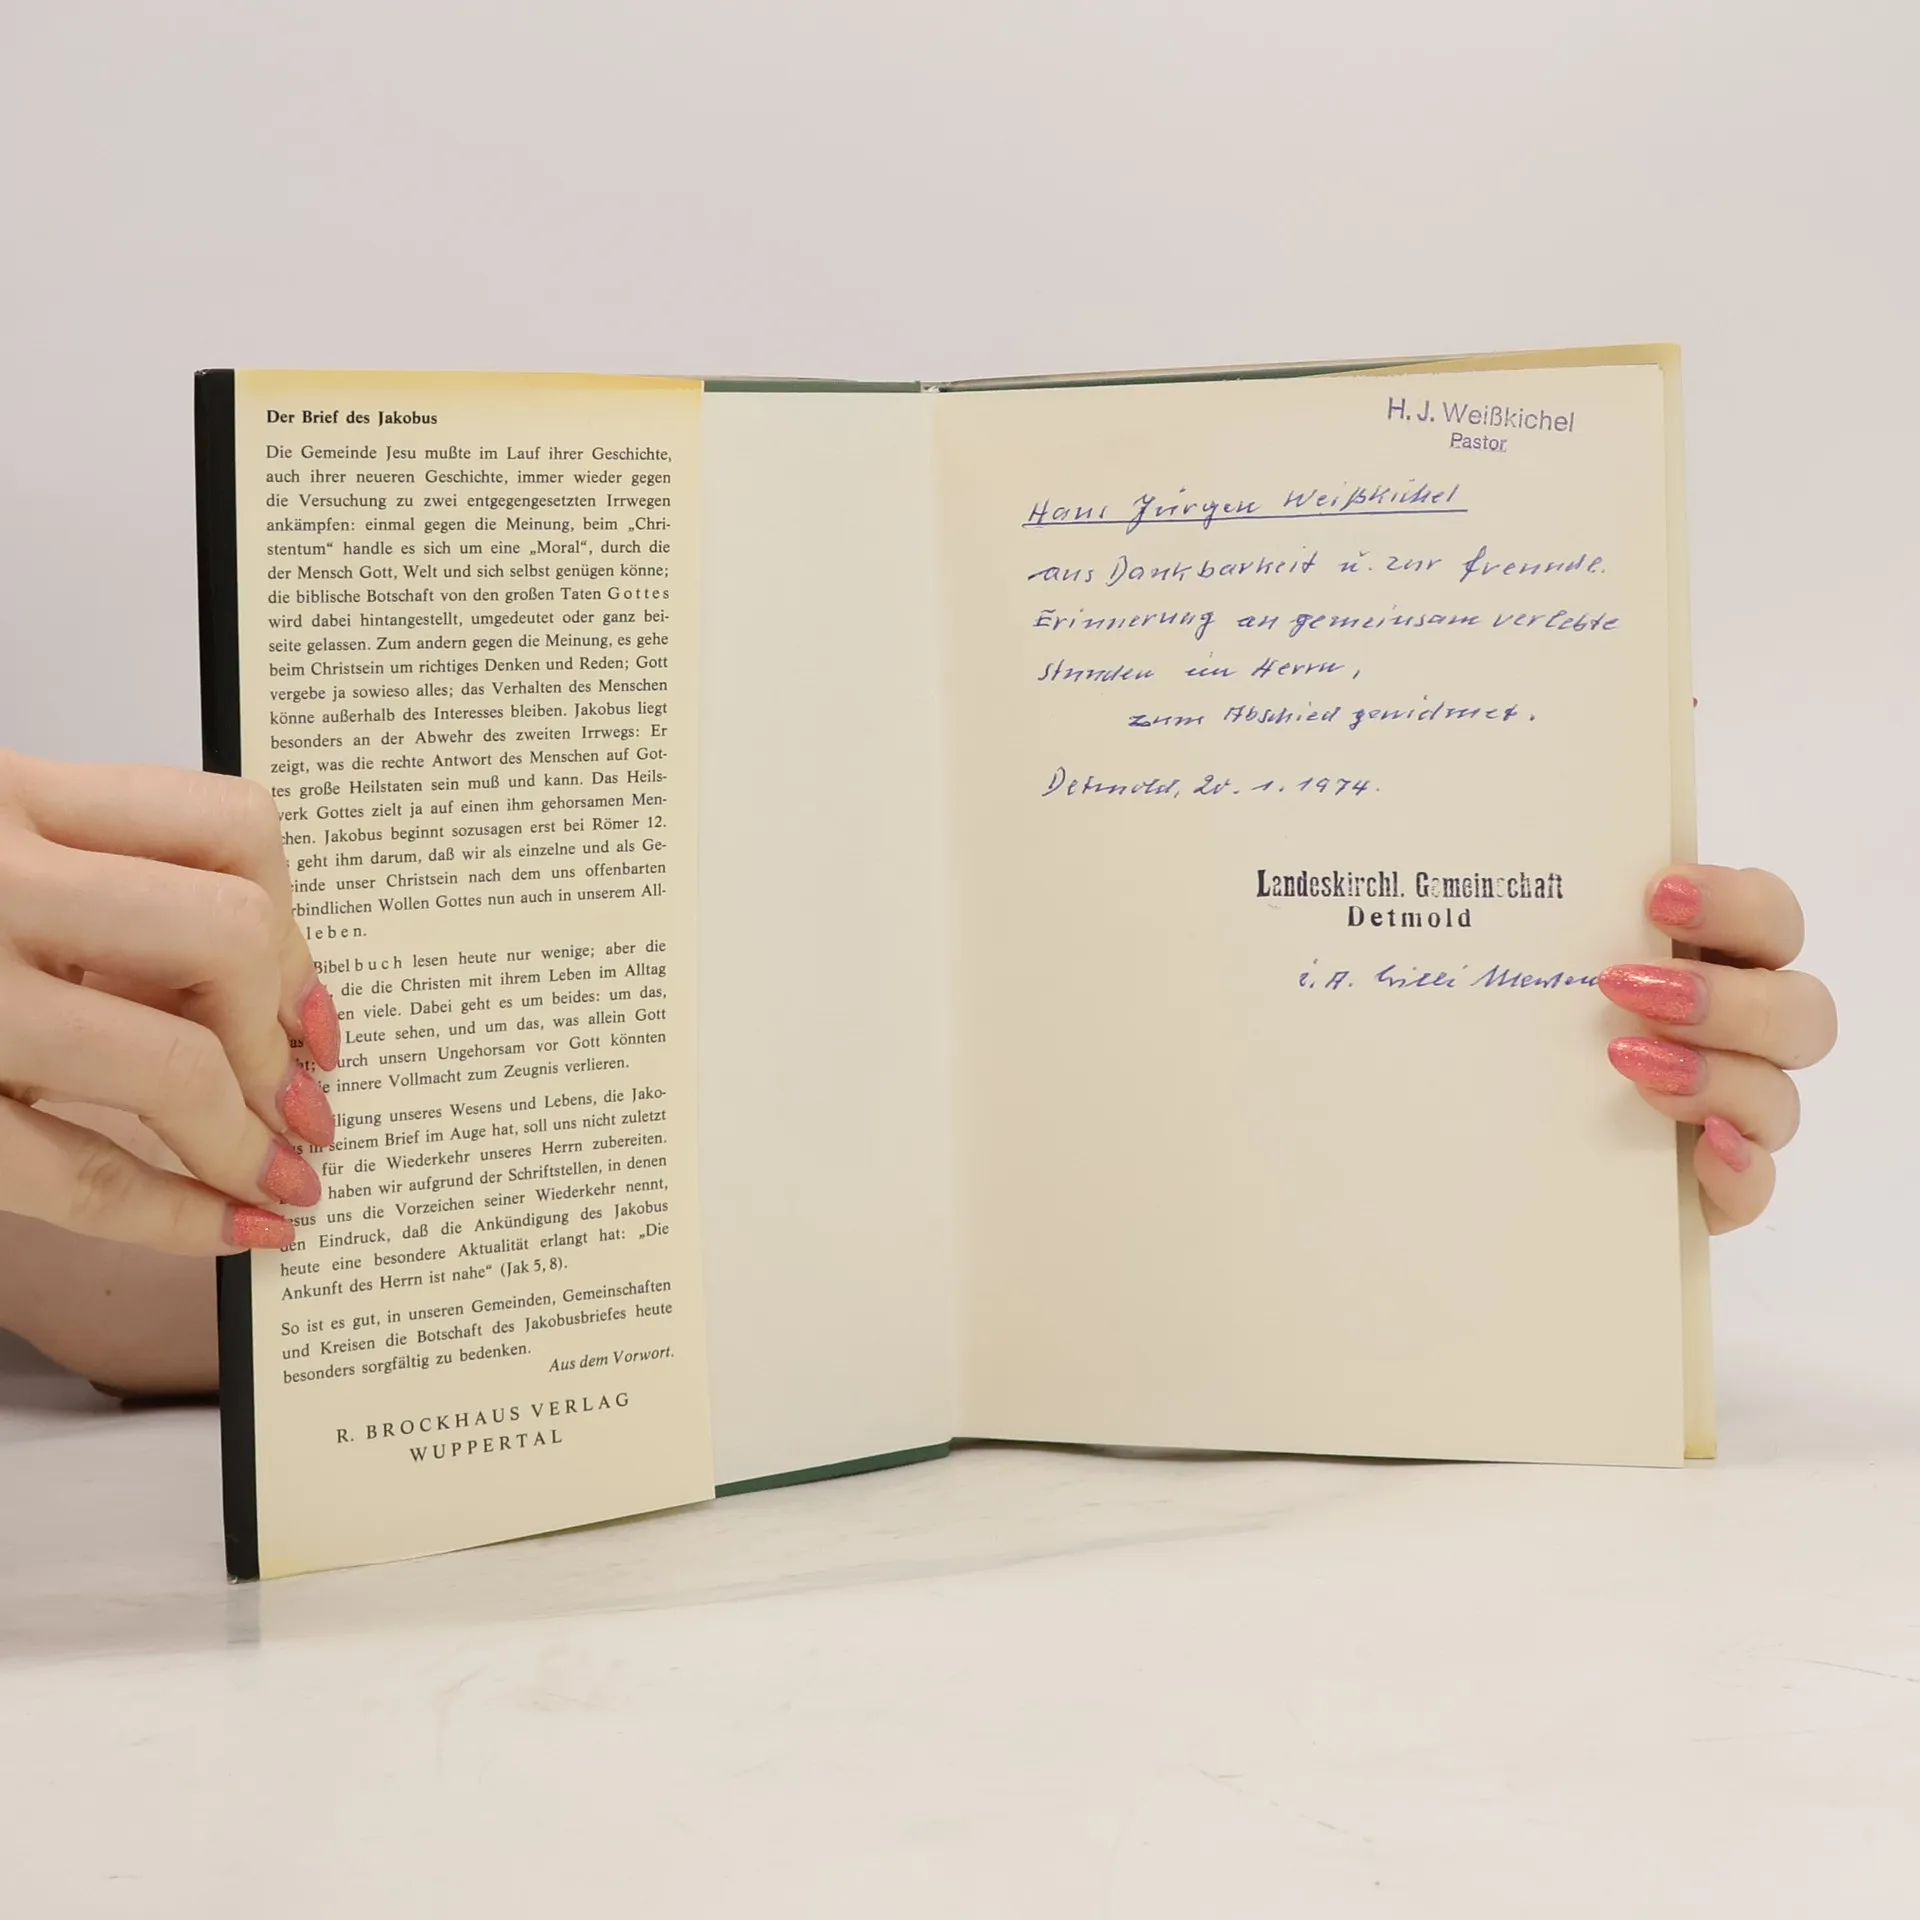 Der Brief des Jakobus
Die Gemeinde Jesu mußte im Lauf ihrer Geschichte,
auch ihrer neueren Geschichte, immer wieder gegen
die Versuchung zu zwei entgegengesetzten Irrwegen
ankämpfen: einmal gegen die Meinung, beim „Chri-
stentum“ handle es sich um eine „Moral“, durch die
der Mensch Gott, Welt und sich selbst genügen könne;
die biblische Botschaft von den großen Taten Gottes
wird dabei hintangestellt, umgedeutet oder ganz bei-
seite gelassen. Zum andern gegen die Meinung, es gehe
beim Christsein um richtiges Denken und Reden; Gott
vergebe ja sowieso alles; das Verhalten des Menschen
könne außerhalb des Interesses bleiben. Jakobus liegt
besonders an der Abwehr des zweiten Irrwegs: Er
zeigt, was die rechte Antwort des Menschen auf Got-
tes große Heilstaten sein muß und kann. Das Heils-
werk Gottes zielt ja auf einen ihm gehorsamen Men-
chen. Jakobus beginnt sozusagen erst bei Römer 12.
geht ihm darum, daß wir als einzelne und als Ge-
einde unser Christsein nach dem uns offenbarten
rbindlichen Wollen Gottes nun auch in unserem All-
leben.
Bibelbuch lesen heute nur wenige; aber die
, die die Christen mit ihrem Leben im Alltag
en viele. Dabei geht es um beides: um das,
as Leute sehen, und um das, was allein Gott
ht; urch unsern Ungehorsam vor Gott könnten
ie innere Vollmacht zum Zeugnis verlieren.
iligung unseres Wesens und Lebens, die Jako-
us in seinem Brief im Auge hat, soll uns nicht zuletzt
für die Wiederkehr unseres Herrn zubereiten.
haben wir aufgrund der Schriftstellen, in denen
Jesus uns die Vorzeichen seiner Wiederkehr nennt,
den Eindruck, daß die Ankündigung des Jakobus
heute eine besondere Aktualität erlangt hat: „Die
Ankunft des Herrn ist nahe“ (Jak 5,8).
So ist es gut, in unseren Gemeinden, Gemeinschaften
und Kreisen die Botschaft des Jakobusbriefes heute
besonders sorgfältig zu bedenken.
Aus dem Vorwort.
R. BROCKHAUS VERLAG
WUPPERTAL
H. J. Weißkichel
Pastor
Hans Jürgen Weißkichel
aus Dankbarkeit u. zur freundl.
Erinnerung an gemeinsam verlebte
Stunden im Herrn,
zum Abschied gewidmet.
Detmold, 20. 1. 1974.
Landeskirchl. Gemeinschaft
Detmold
i. A. Willi